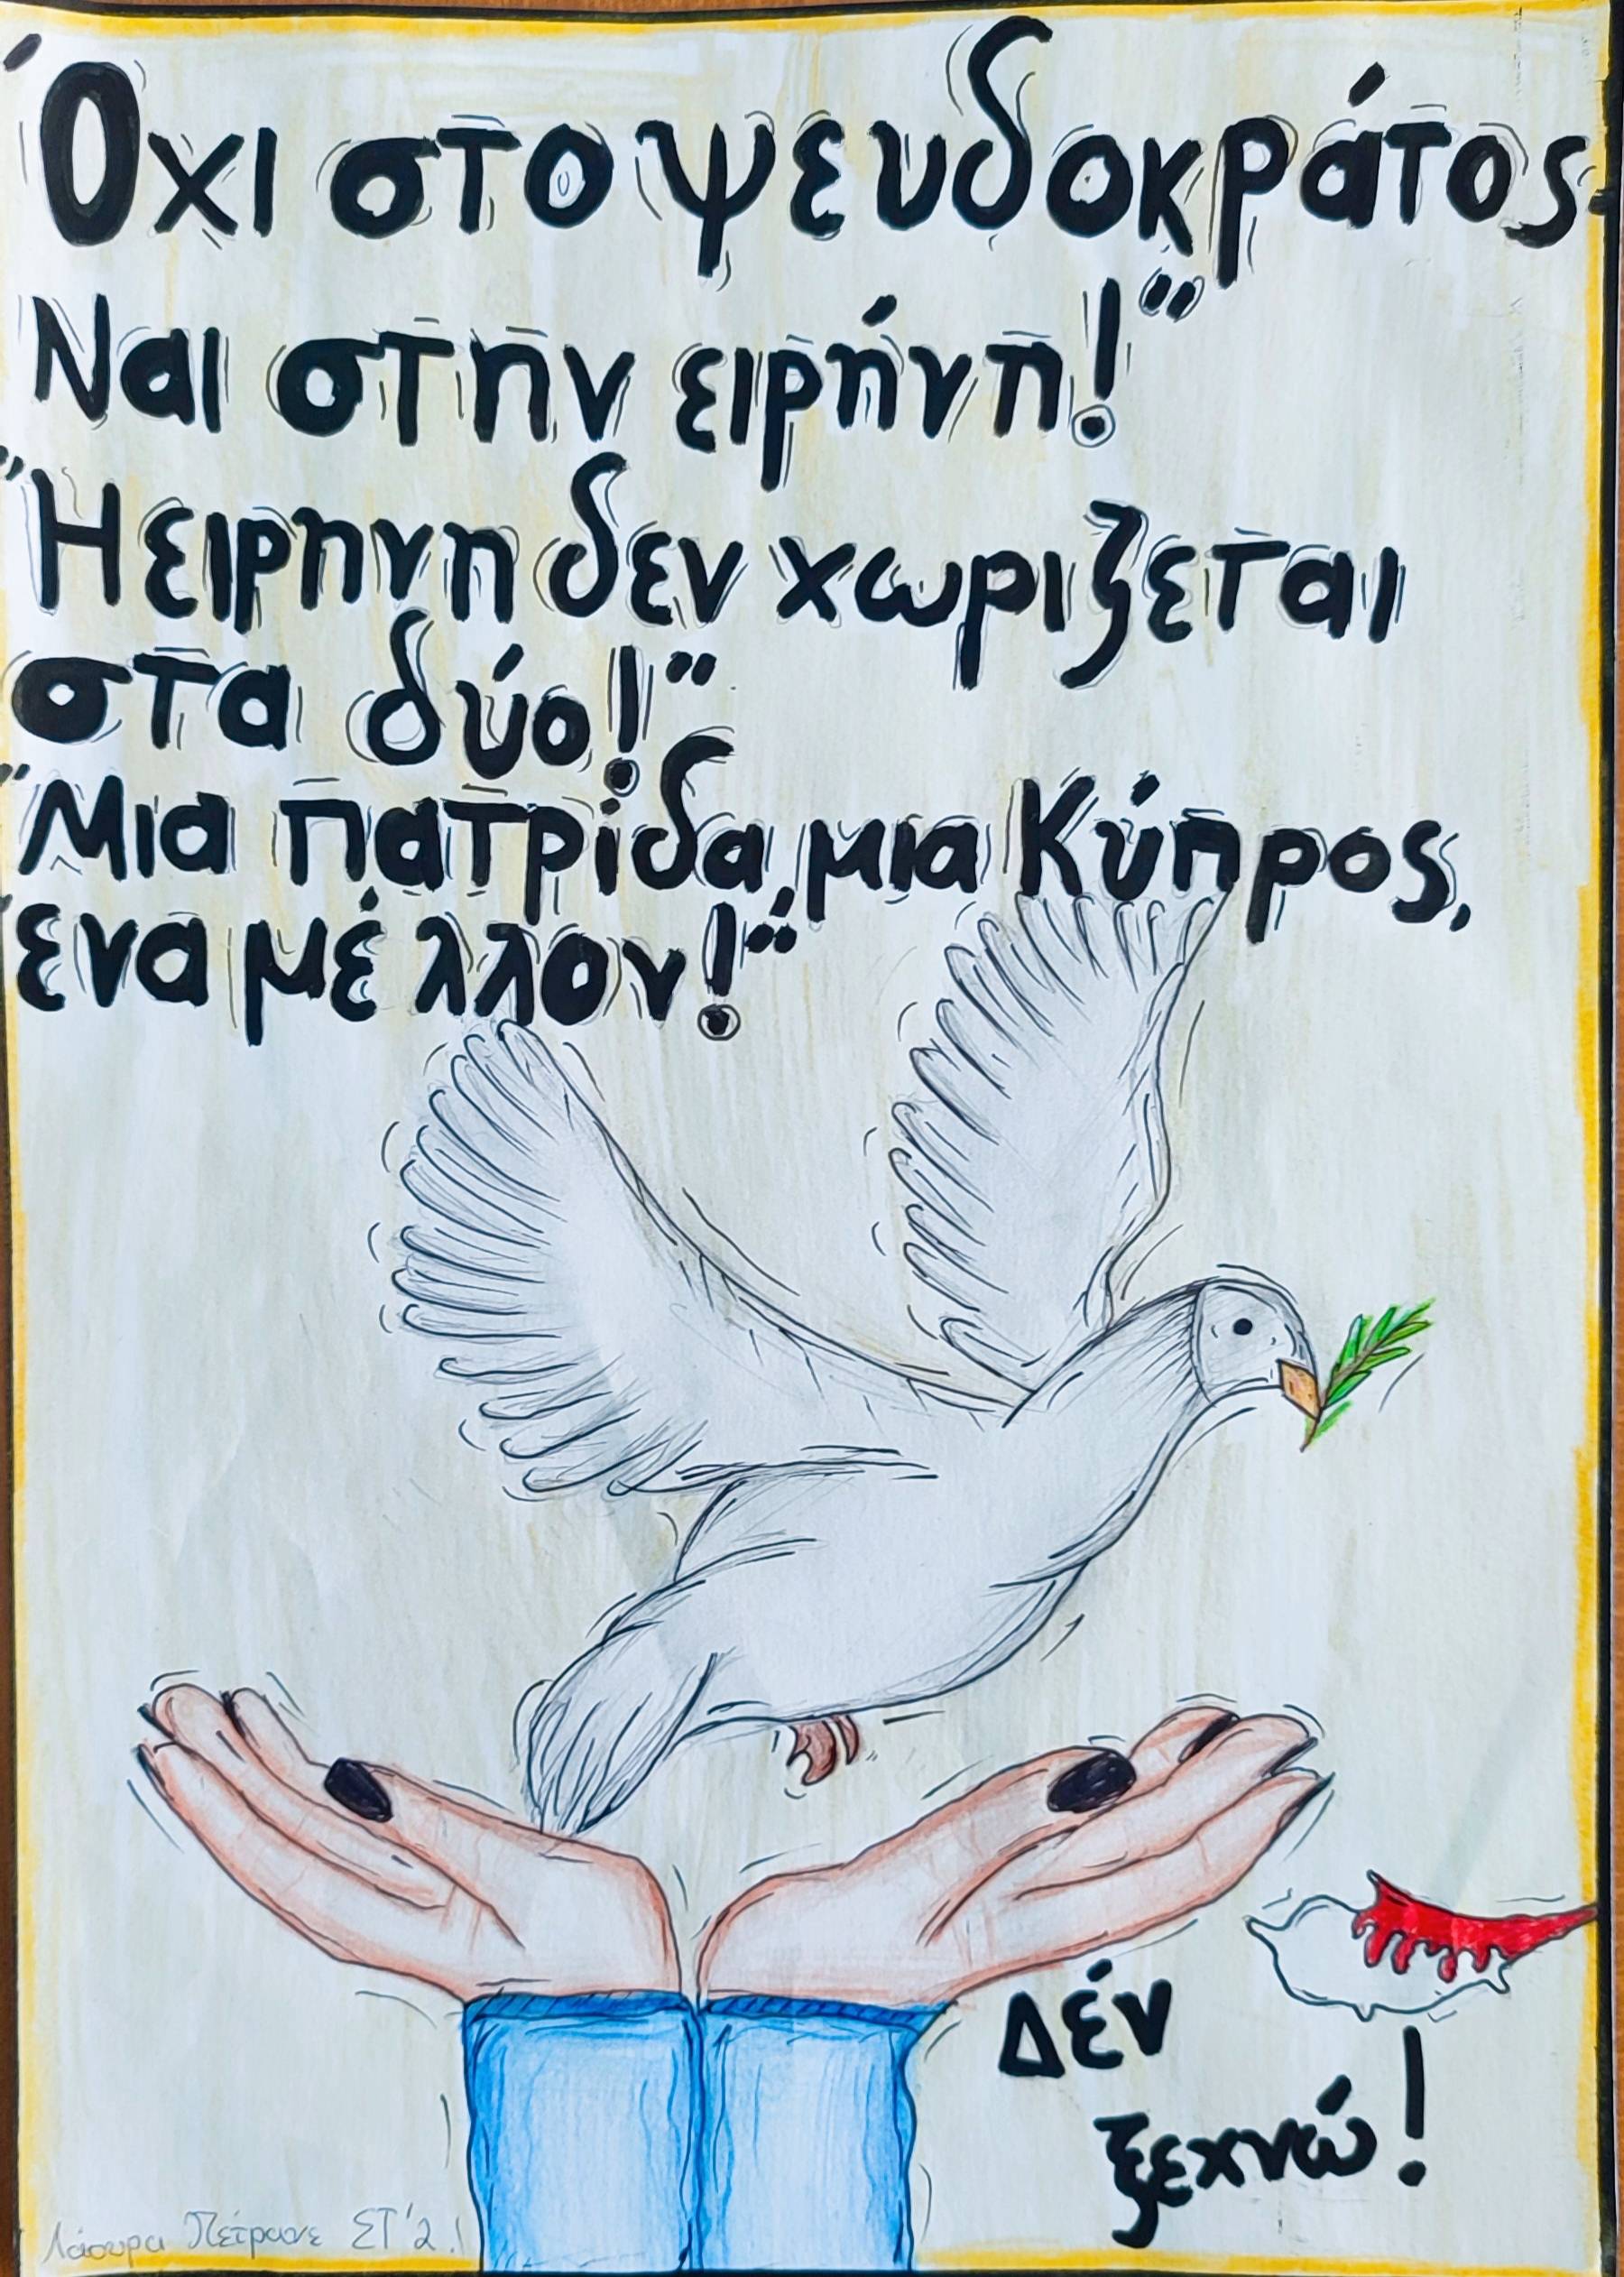 Όχι στο ψευδοκράτος-
Ναι στην ειρήνη!"
"Η ειρηνη δεν χωριζεται
στα δύο!"
"Μια πατρίδα, μια Κύπρος,
ένα μέλλον!"
Δέν
ξεχνώ!
ΣΤ'2!